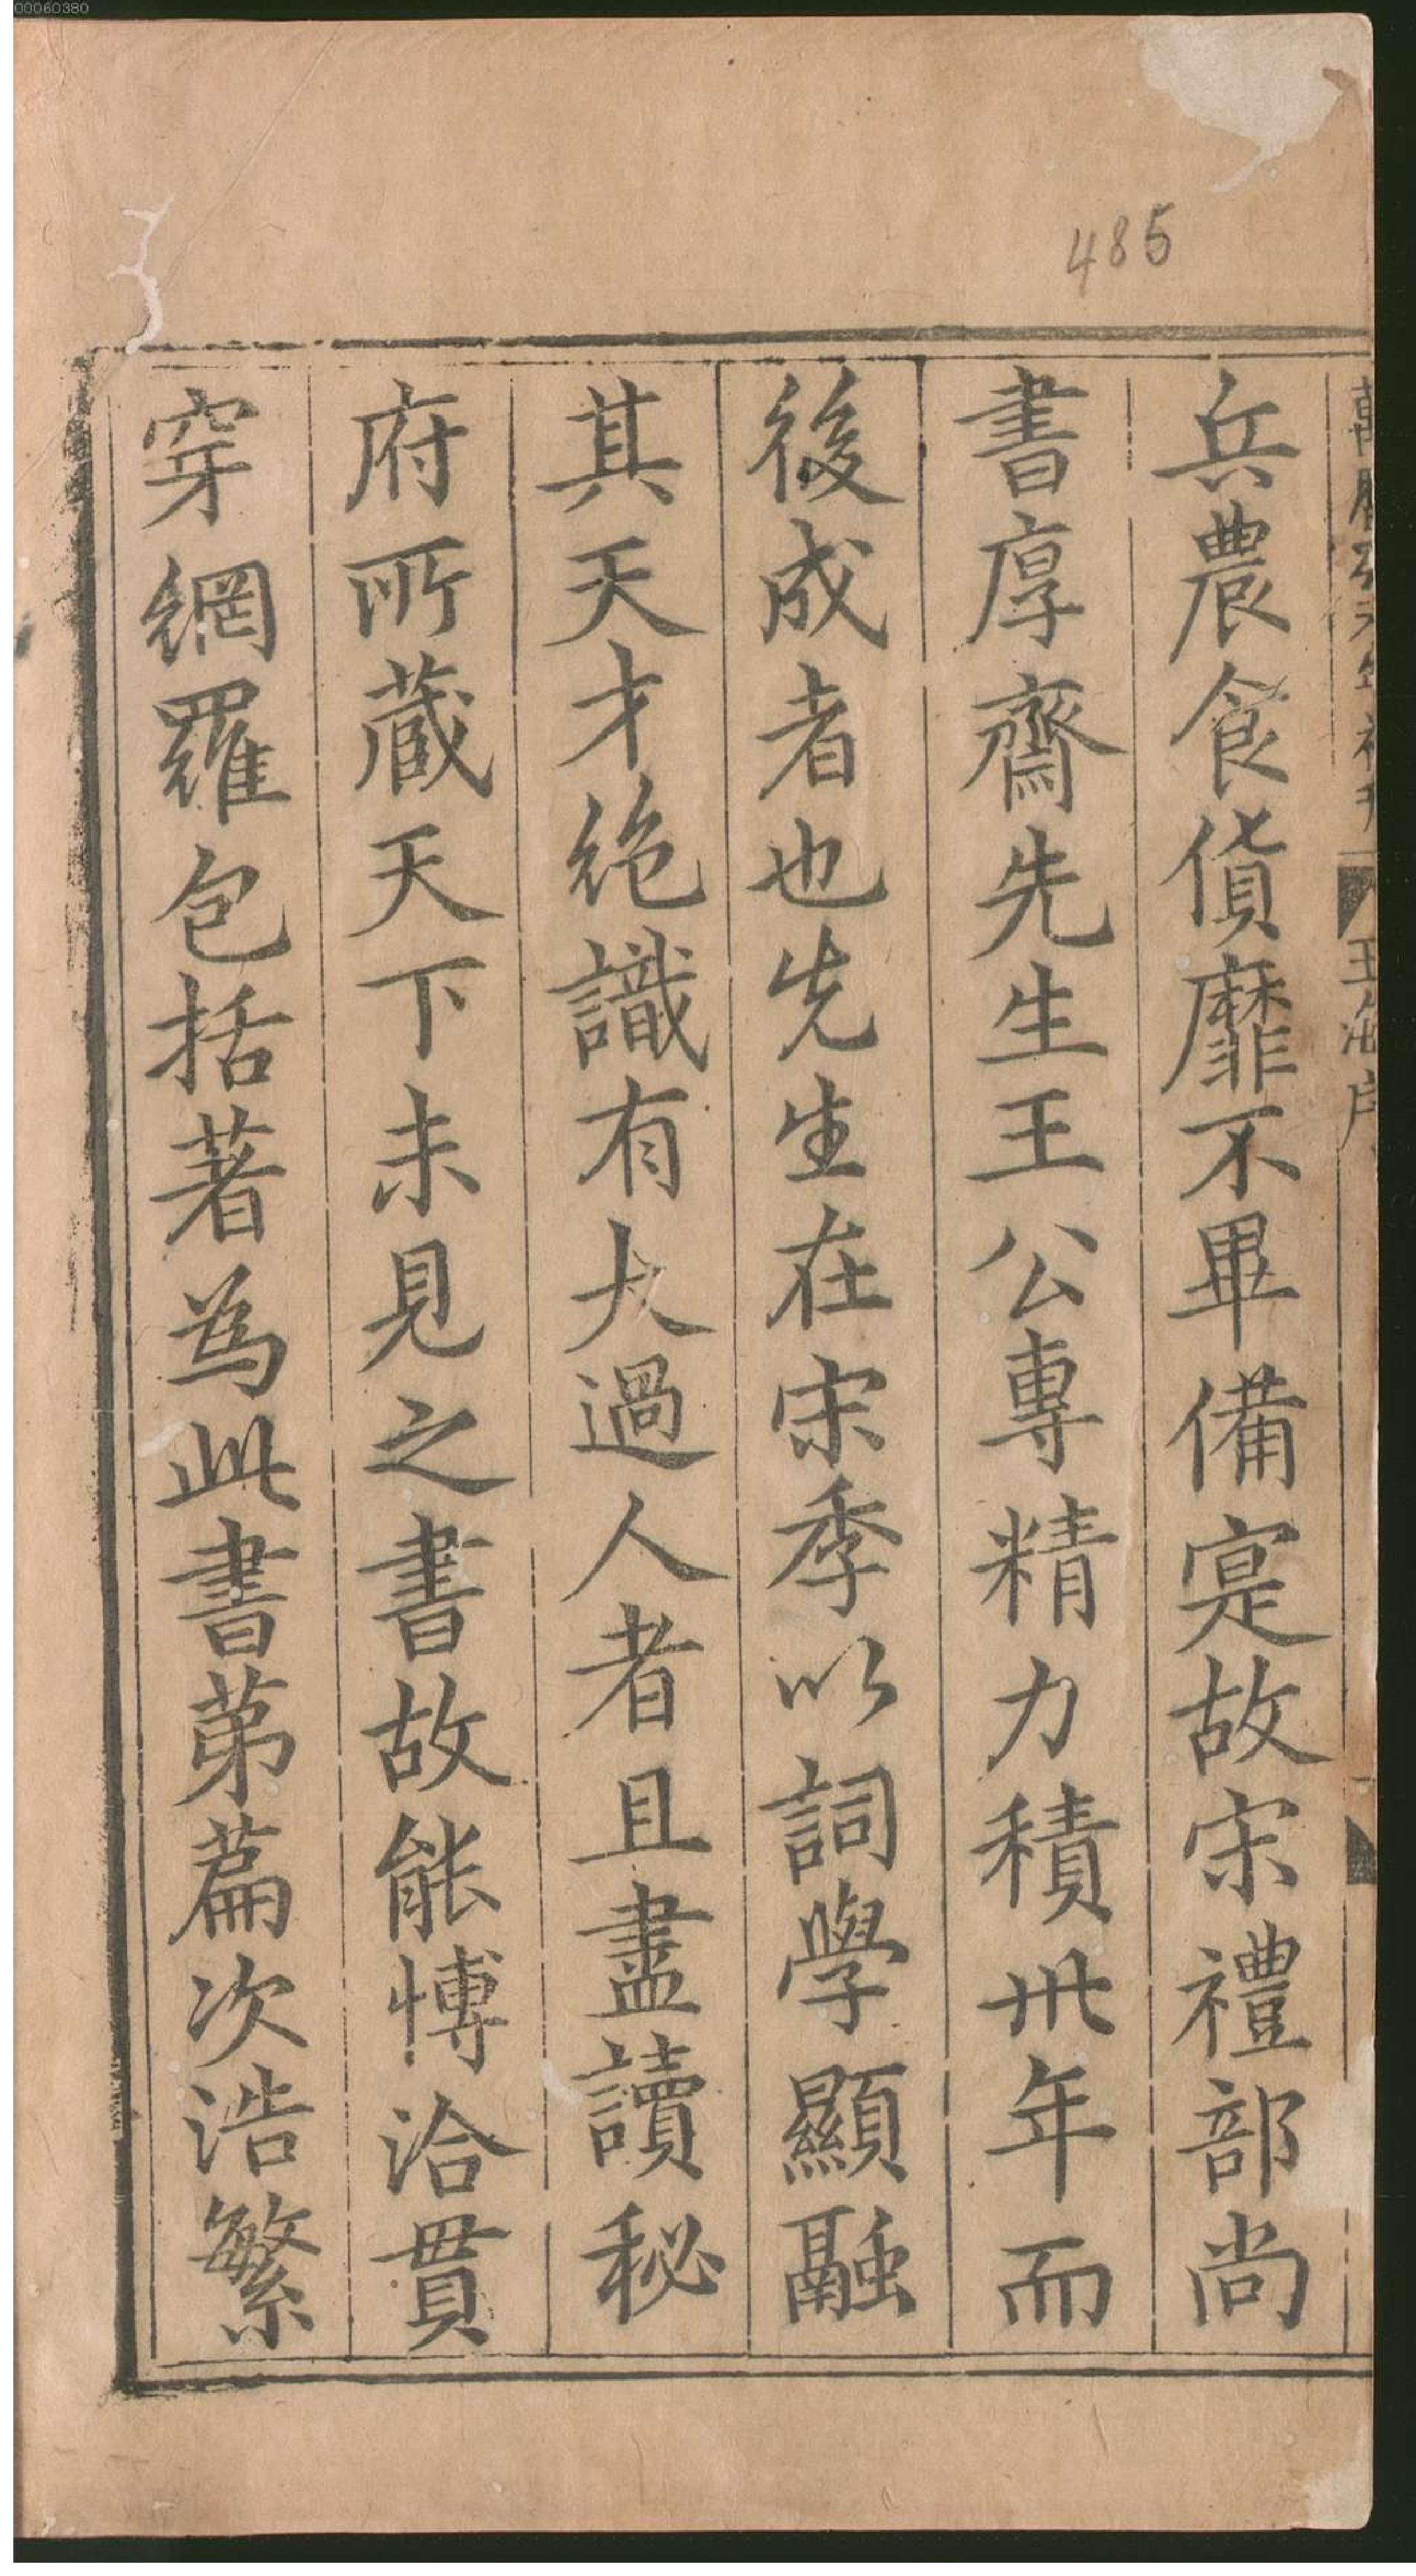 00060380
485
玉海序
兵農食貨靡不畢備寔故宋禮部尚
書厚齋先生王公專精力積卅年而
後成者也先生在宋季以詞學顯融
其天才絶識有大過人者且盡讀秘
府所藏天下未見之書故能博洽貫
穿網羅包括著為此書苐篇次浩繁